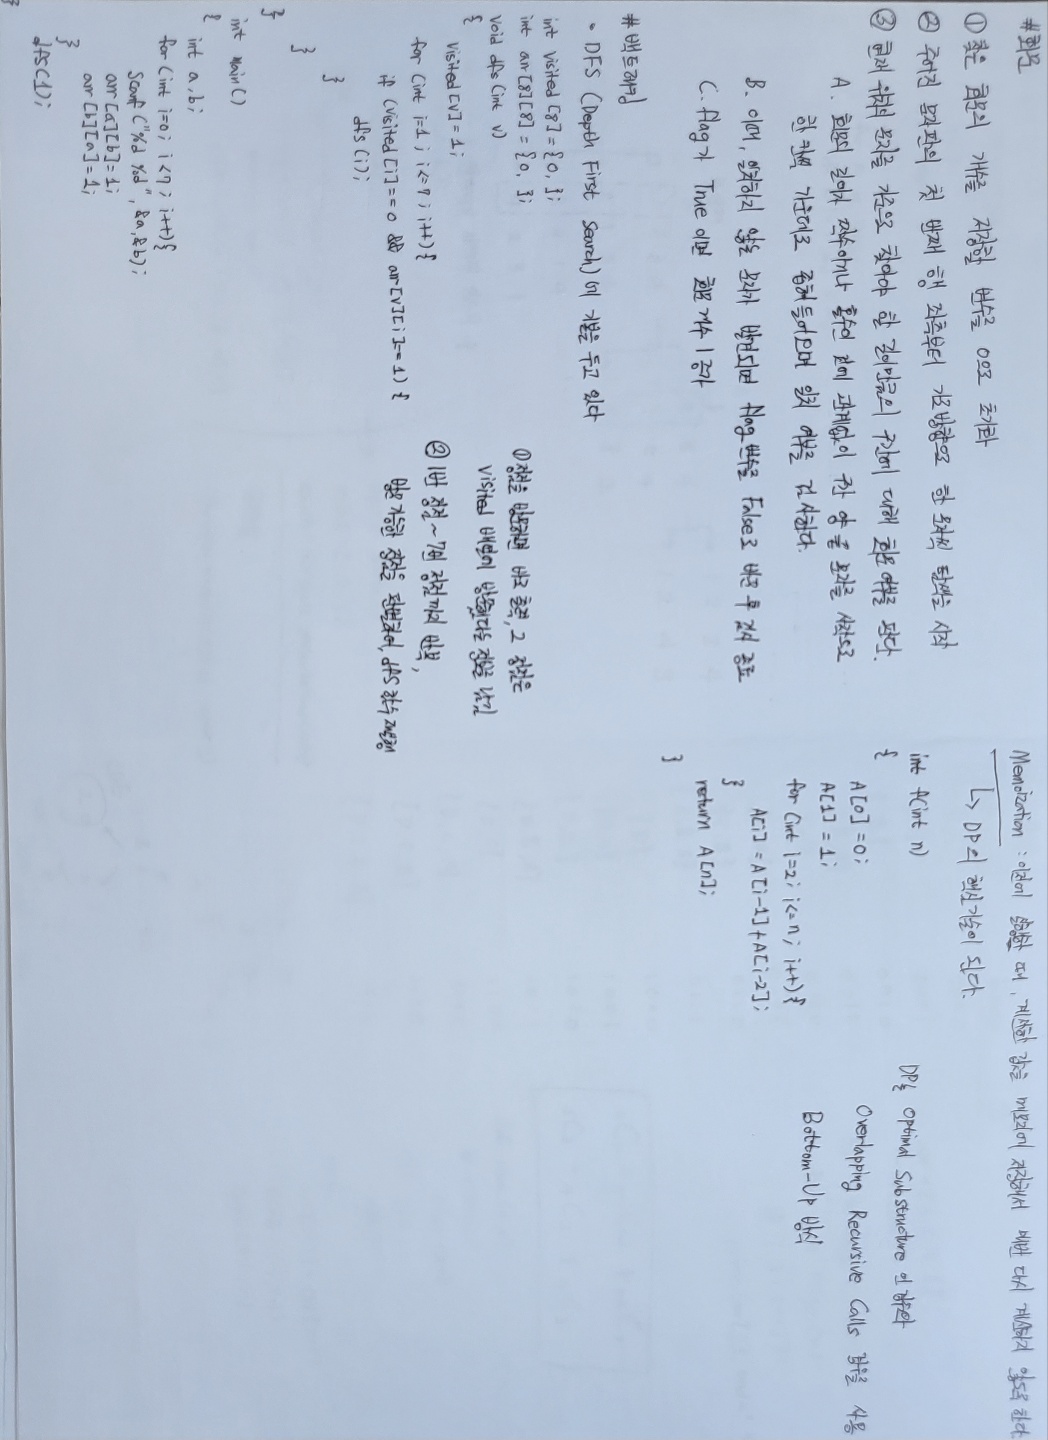 #회문
① 찾은 회문의 개수를 저장할 변수를 0으로 초기화
② 주어진 문자판의 첫 번째 행 좌측부터 가로방향으로 한 문자씩 탐색을 시작
③ 현재 위치의 문자를 기준으로 찾아야 할 길이만큼의 구간에 대해 회문 여부를 판단.
A. 회문의 길이가 짝수이거나 홀수인 것에 관계없이 구간 양 끝 문자를 시작으로
한 칸씩 가운데로 좁혀 들어오며 일치 여부를 검사한다.
B. 이때, 일치하지 않는 문자가 발견되면 flag 변수를 False로 바꾼 후 검사 종료
C. flag가 True 이면 회문 개수 1 증가
#백트래킹
• DFS (Depth First Search)에 기본을 두고 있다
int visited[8]={0, };
int arr[8][8] = {0, };
void dfs(int v)
{
visited[v]=1;
for (int i=1; i<=7; i++){
if (visited[i]==0 && arr[v][i]==1) {
dfs(i);
}
}
}
int main()
{
int a,b;
for (int i=0; i<7; i++){
scanf("%d %d", &a,&b);
arr[a][b]=1;
arr[b][a]=1;
}
dfs(1);
}
① 정점을 방문하면 바로 출력, 그 정점은
visited 배열에 방문했다는 정보를 남김
② 1번 정점~7번 정점까지 반복,
방문 가능한 정점을 판별하여, dfs 함수 재실행
Memoization : 이전에 실행한 때, 계산한 값을 메모리에 저장해서 매번 다시 계산하지 않도록 한다.
↳ DP의 핵심기술이 된다.
int f(int n)
{
A[0]=0;
A[1]=1;
for (int i=2; i<=n; i++){
A[i]=A[i-1]+A[i-2];
}
return A[n];
}
DP는 Optimal Substructure 인 경우와
Overlapping Recursive Calls 경우를 사용
Bottom-Up 방식